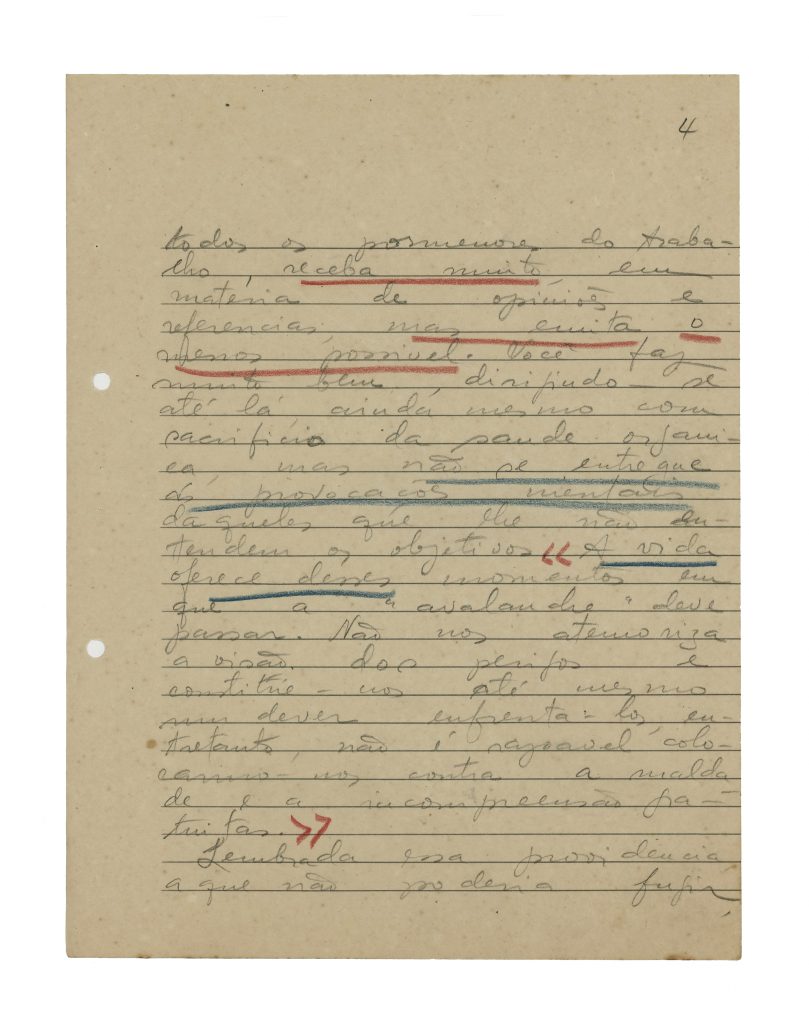 4
todos os pormenores do traba-
lho, receba muito, em
materia de opiniões e
referencias, mas emita o
menos possivel. Você faz
muito bem, dirijindo-se
até lá, ainda mesmo com
sacrificio da saude organi-
ca, mas não se entregue
ás provocações mentais
daqueles que lhe não en-
tendem os objetivos « A vida
oferece desses momentos em
que a "avalanche" deve
passar. Não nos atemoriza
a visão dos perigos e
constitúe-nos até mesmo
um dever enfrenta-los, en-
tretanto, não é razoavel colo-
carmo-nos contra a malda
de e a incompreensão gra-
tuitas. »
Lembrada essa providencia
a que não poderia fugir,